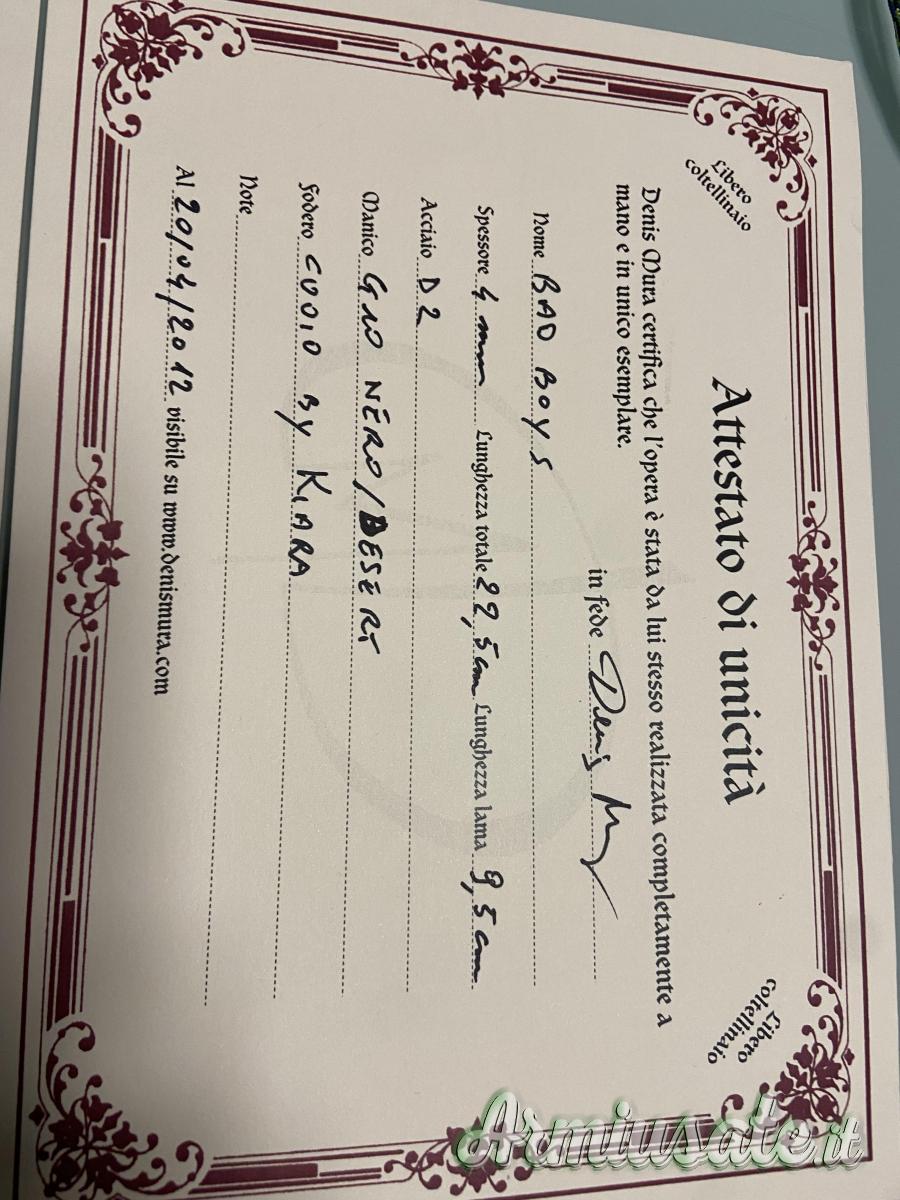 Libero
coltellinaio
Libero
coltellinaio
Attestato di unicità
Denis Mura certifica che l'opera è stata da lui stesso realizzata completamente a
mano e in unico esemplare.
in fede Denis M
Nome BAD BOYS
Spessore 4 mm Lunghezza totale 22,5 cm Lunghezza lama 9,5 cm
Acciaio D2
Manico G10 NERO/DESERT
Fodero CUOIO BY KIARA
Note
Al 20/04/2012 visibile su www.denismura.com
Armiusate.it